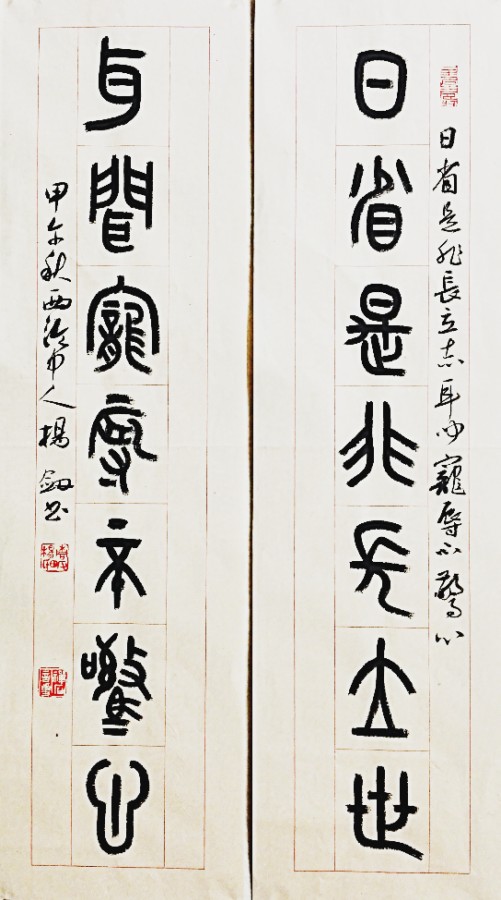 日省是非長立志耳聞寵辱不驚心
日省是非長立世
耳聞寵辱不驚心
甲午秋西泠人楊劔書